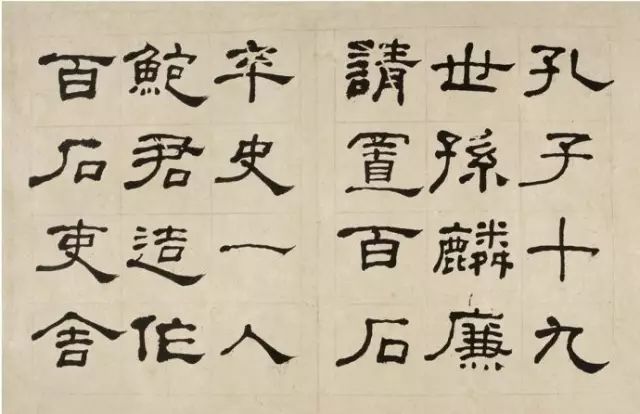 孔子十九
世孫麟廉
請置百石
卒史一人
鮑君造作
百石吏舍